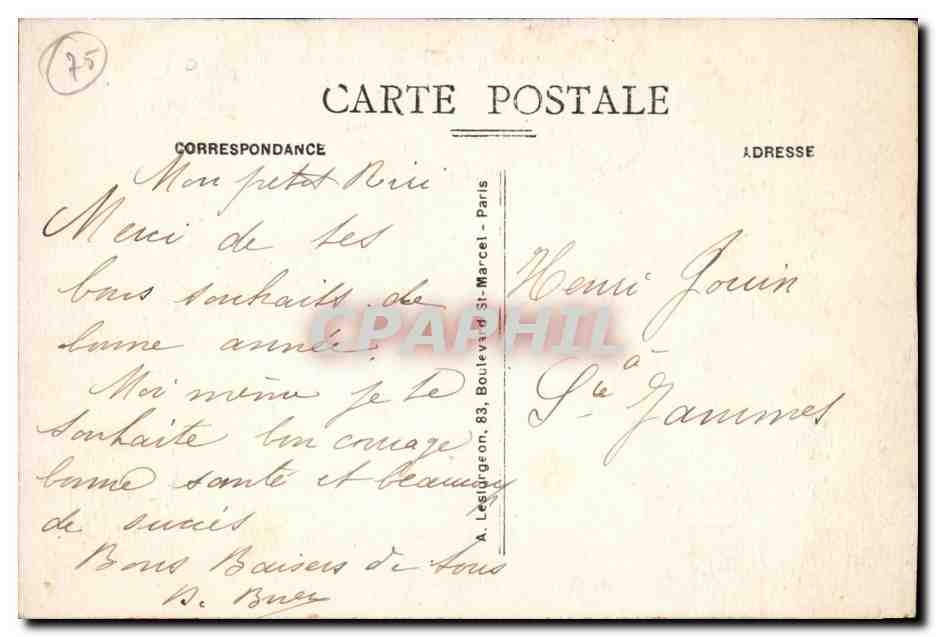 75
CARTE POSTALE
CORRESPONDANCE
ADRESSE
Mon petit Riri
Merci de tes
bons souhaits de
bonne année.
Moi même je te
souhaite bon courage
bonne santé et beaucoup
de succès
Bons Baisers de tous
A. Leslurgeon, 83, Boulevard St-Marcel - Paris
Henri Jouin
à
Jammes
CPAPHIL